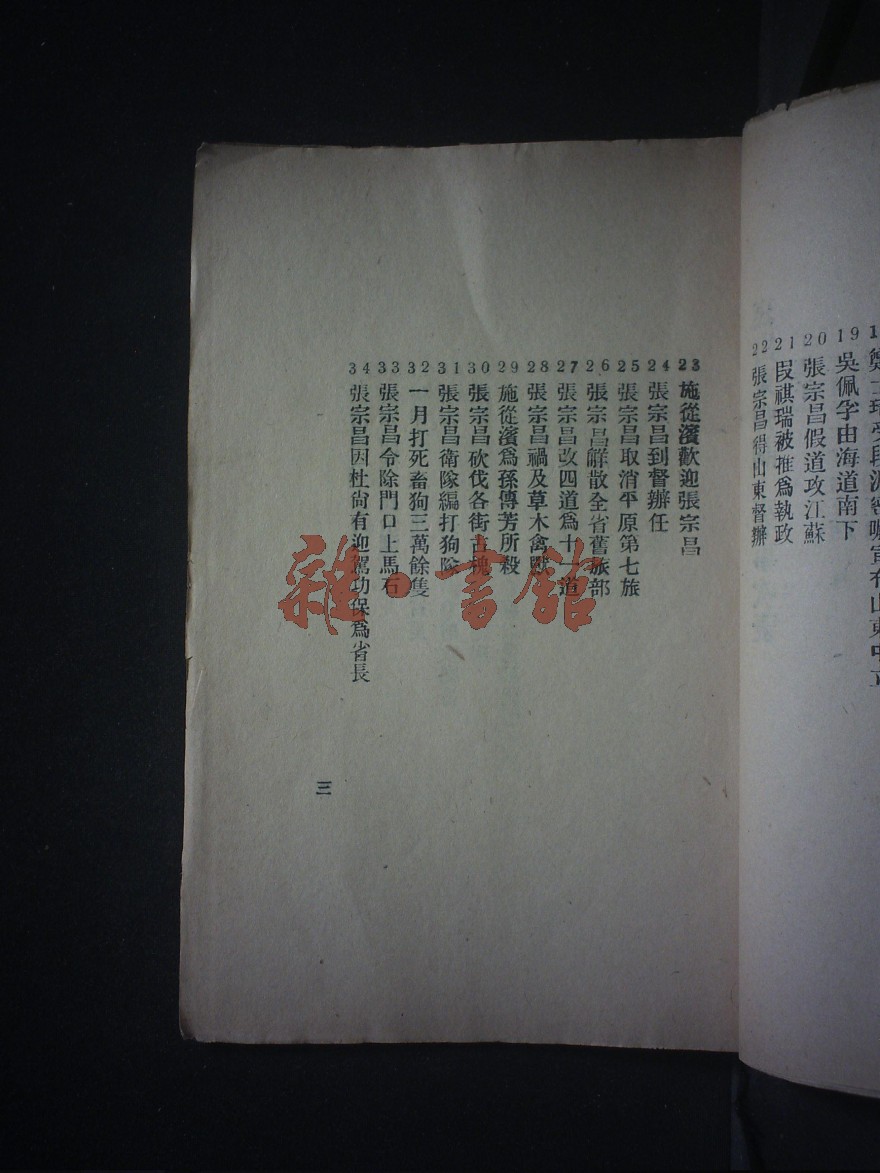 19 吳佩孚由海道南下
20 張宗昌假道攻江蘇
21 段祺瑞被推爲執政
22 張宗昌得山東督辦
23 施從濱歡迎張宗昌
24 張宗昌到督辦任
25 張宗昌取消平原第七旅
26 張宗昌解散全省舊旅部
27 張宗昌改四道爲十一道
28 張宗昌禍及草木禽獸
29 施從濱爲孫傳芳所殺
30 張宗昌砍伐各街古槐
31 張宗昌衛隊編打狗隊
32 一月打死畜狗三萬餘隻
33 張宗昌令除門口上馬石
34 張宗昌因杜尙有迎駕功保爲省長
三
雜·書館